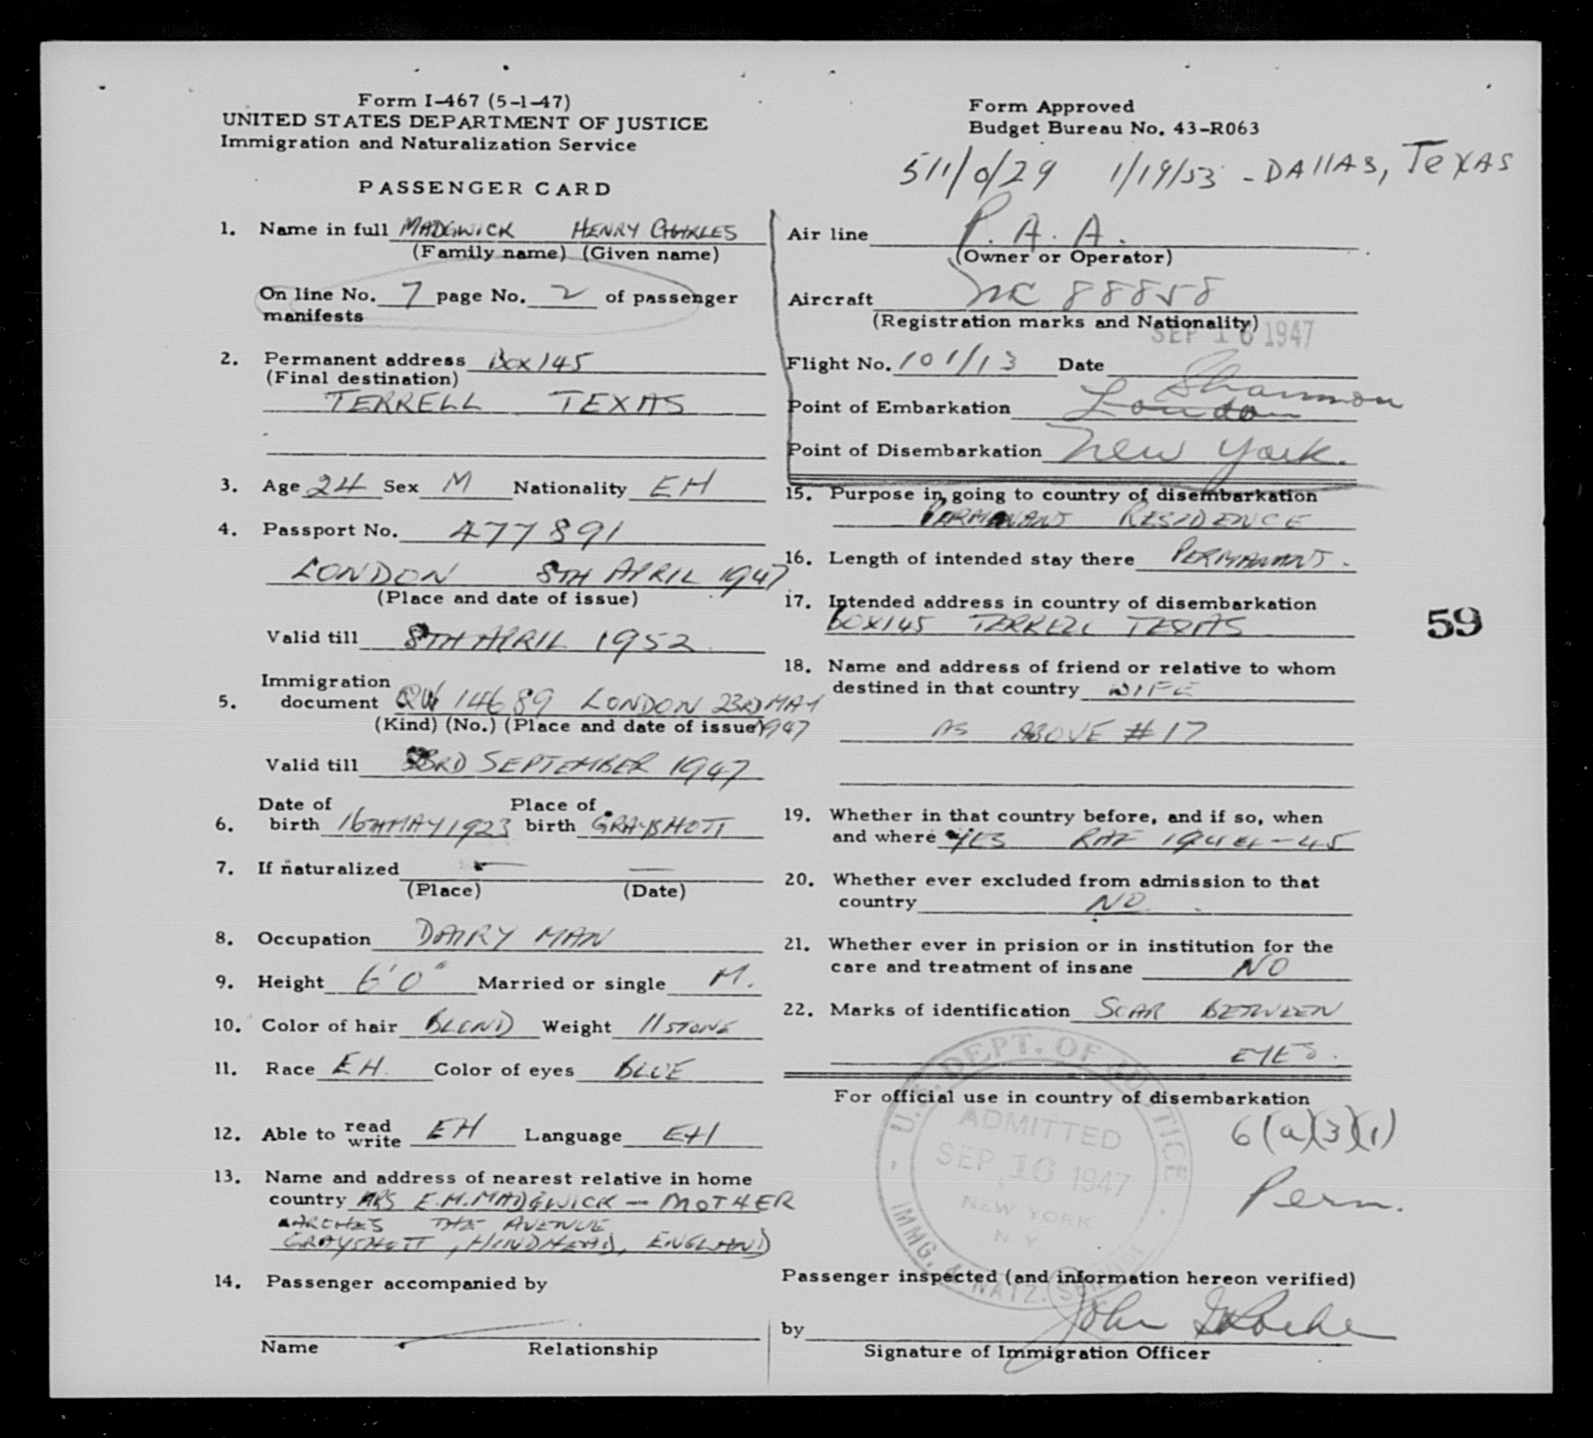 Form I-467 (5-1-47)
UNITED STATES DEPARTMENT OF JUSTICE
Immigration and Naturalization Service
PASSENGER CARD
Form Approved
Budget Bureau No. 43-R063
511/0/29 1/19/53 - DAllAS, TexAS
1. Name in full MADGWICK HENRY CHARLES
(Family name) (Given name)
On line No. 7 page No. 2 of passenger
manifests
2. Permanent address Box 145
(Final destination)
TERRELL TEXAS
3. Age 24 Sex M Nationality EH
4. Passport No. 477891
LONDON 8TH APRIL 1947
(Place and date of issue)
Valid till 8TH APRIL 1952
Immigration
5. document QW 14689 LONDON 23RD MAY
(Kind) (No.) (Place and date of issue) 1947
Valid till 23RD SEPTEMBER 1947
Date of Place of
6. birth 16TH MAY 1923 birth GRAYSHOTT
7. If naturalized — —
(Place) (Date)
8. Occupation DAIRY MAN
9. Height 6'0" Married or single M.
10. Color of hair BLOND Weight 11 STONE
11. Race EH. Color of eyes BLUE
12. Able to read write EH Language EH
13. Name and address of nearest relative in home
country MRS E.H. MADGWICK — MOTHER
ARCHES THE AVENUE
GRAYSHOTT, HINDHEAD, ENGLAND
14. Passenger accompanied by
Name Relationship
Air line P. A. A.
(Owner or Operator)
Aircraft NC 88858
(Registration marks and Nationality)
SEP 16 1947
Flight No. 101/13 Date
Shannon
Point of Embarkation London
Point of Disembarkation New York.
15. Purpose in going to country of disembarkation
PERMANANT RESIDENCE
16. Length of intended stay there PERMANANT.
17. Intended address in country of disembarkation
BOX 145 TERRELL TEXAS
18. Name and address of friend or relative to whom
destined in that country WIFE
AS ABOVE #17
19. Whether in that country before, and if so, when
and where YES RAF 1944-45
20. Whether ever excluded from admission to that
country NO.
21. Whether ever in prision or in institution for the
care and treatment of insane NO
22. Marks of identification SCAR BETWEEN
EYES.
For official use in country of disembarkation
6(a)(3)(1)
Perm.
U.S. DEPT. OF JUSTICE
ADMITTED
SEP 16 1947
NEW YORK
N Y
IMMG. & NATZ. SERVICE
Passenger inspected (and information hereon verified)
by John
Signature of Immigration Officer
59